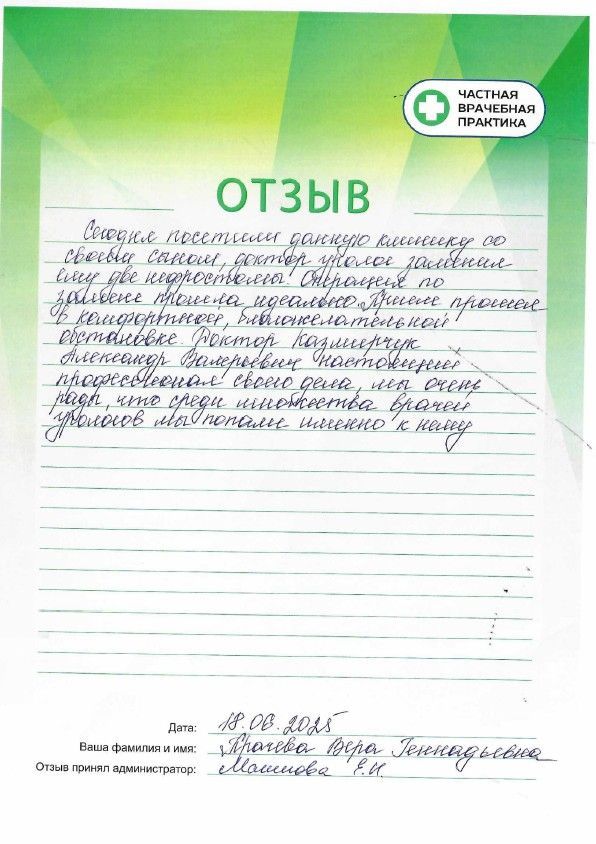 ЧАСТНАЯ
ВРАЧЕБНАЯ
ПРАКТИКА
ОТЗЫВ
Сегодня посетили данную клинику со
своим сыном, доктор уролог заменил
ему две нефростомы. Операция по
замене прошла идеально. Прием прошел
в комфортной, благожелательной
обстановке. Доктор Казмирчук
Александр Валерьевич настоящий
профессионал своего дела, мы очень
рады, что среди множества врачей
урологов мы попали именно к нему
Дата: 18.06.2025
Ваша фамилия и имя: Вера Геннадьевна
Отзыв принял администратор: Е.И.